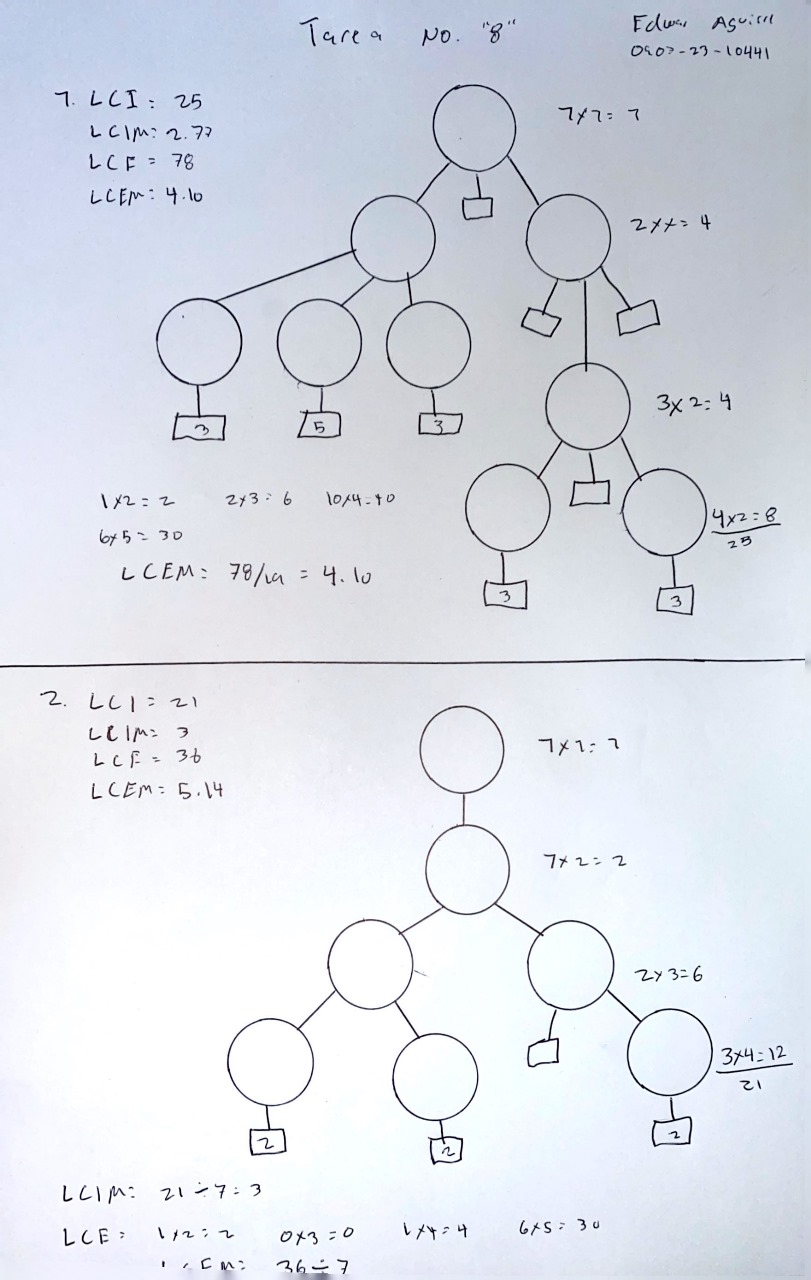 Tarea No. "8"
Edwar
0907-23-10441
1. LCI: 25
LCIM: 2.77
LCE = 78
LCEM: 4.10
1x1= 1
2xx= 4
3x2=4
4x2=8
25
3
5
3
3
3
1x2=2 2x3=6 10x4=40
6x5=30
LCEM: 78/19 = 4.10
2. LCI = 21
LCIM= 3
LCE = 36
LCEM= 5.14
1x1=1
1x2=2
2x3=6
3x4=12
21
2
2
2
LCIM: 21÷7=3
LCE: 1x2=2 0x3=0 1x4=4 6x5=30
36÷7